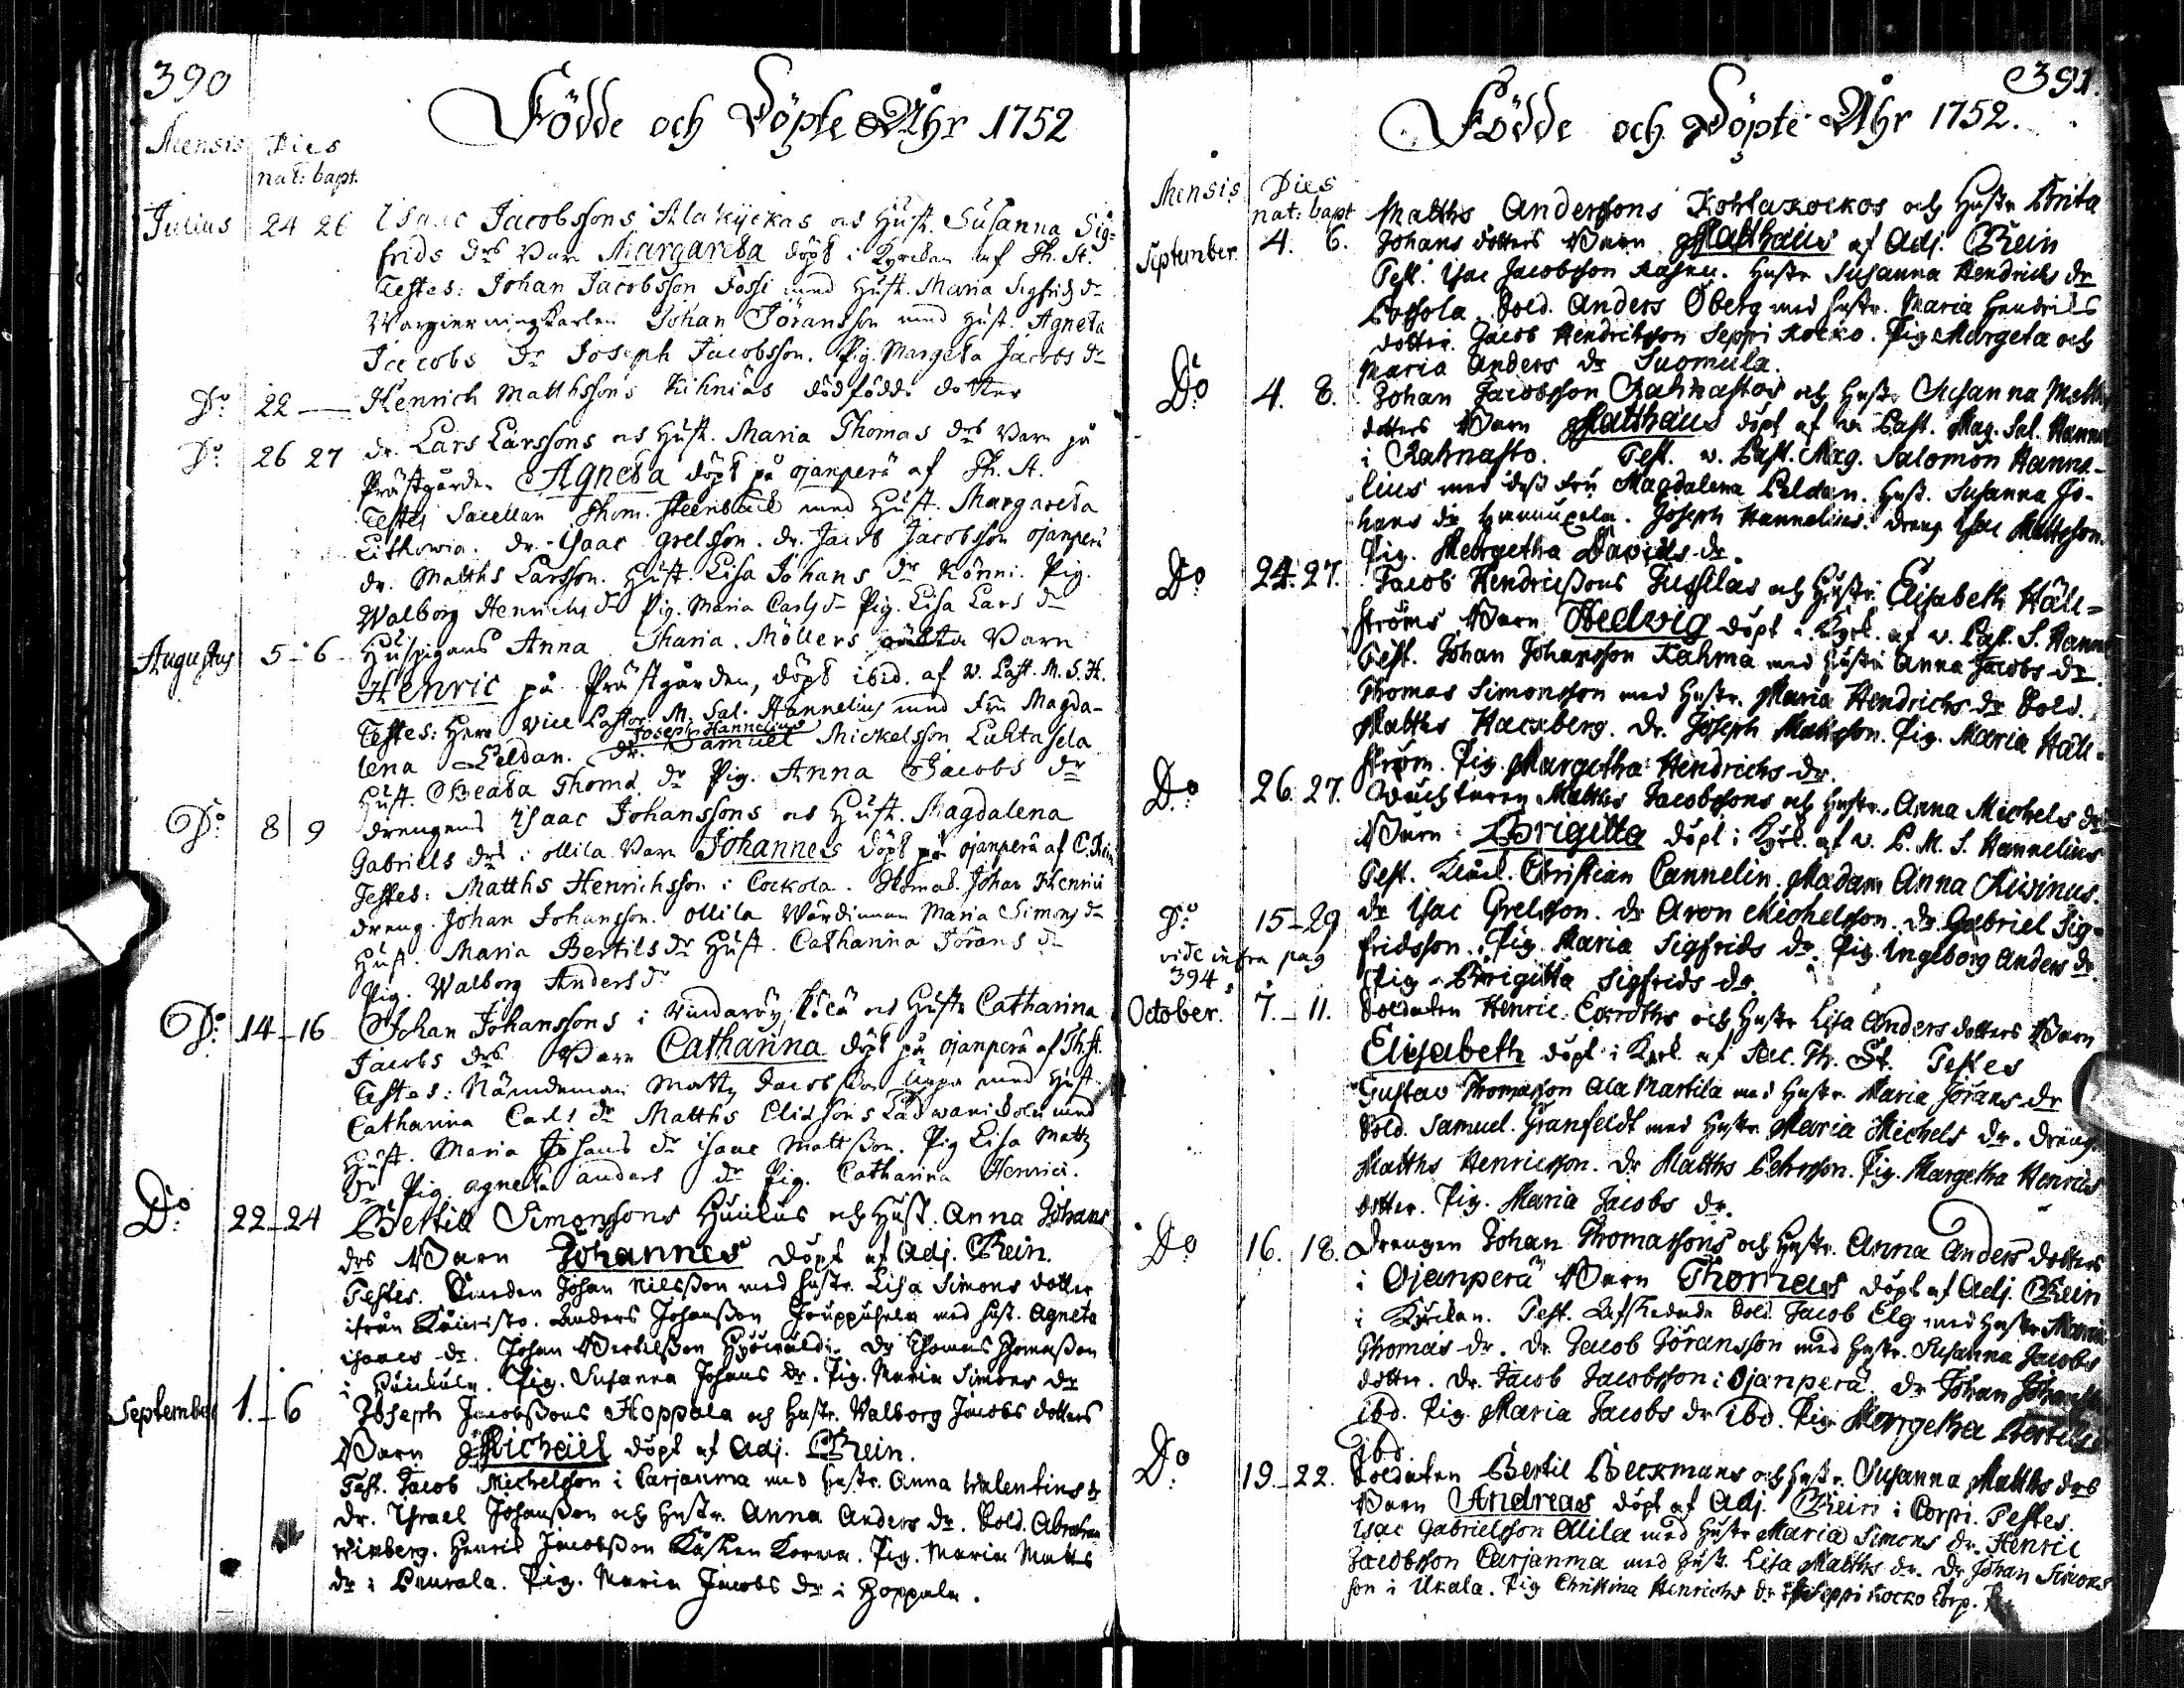 390
Födde och Döpte Åhr 1752
Mensis Dies
nat: bapt.
Julius 24 26 Isaac Jacobssons Alakyckas och Hust. Susanna Sig=
frids drs Barn Margareta döpt i Kyrckan af Th. St.
Testes: Johan Jacobsson Fossi med Hust. Maria Sigfrids dr
Wargierningskarlen Johan Jöransson med Hust. Agneta
Jacobs dr Joseph Jacobsson. Pig. Margeta Jacobs dr
Do 22 — Henrich Matthssons Kihniäs dödfödde dotter
Do 26 27 dr. Lars Larssons och Hust. Maria Thomas drs Barn på
Prästgården Agneta döpt på ojanperä af Th. St.
Testes Sacellan Thom. Steenbäck med Hust. Margareta
Lithowia. dr. Isaac Grelsson. dr. Jacob Jacobsson ojanperä
dr. Matths Larsson. Hust. Lisa Johans dr Könni. Pig.
Walborg Henrichs dr Pig. Maria Carls dr Pig. Lisa Lars dr
Augustus 5-6 Huspigans Anna Maria Möllers oäkta Barn
Henric på Prästgården, döpt ibid. af v. Past. M. S. H.
Testes: Herr Vice Pastor M. Sal. Hannelius med Fru Magda-
Joseph Hannelius
lena Peldan. dr. Samuel Mickelsson Luhtasela
Hust. Beata Thoma dr Pig. Anna Jacobs dr
Do 8 9 drengens Isaac Johanssons och Hust. Magdalena
Gabriels drs i ollila Barn Johannes döpt på ojanperä af C. Rein
Testes: Matths Henrichsson i Cockola. Thomas Johan Henrici
dreng. Johan Johansson. ollila Wärdinnan Maria Simons dr
Hust. Maria Bertils dr Hust. Catharina Jörans dr
Pig. Walborg Anders dr
Do 14-16 Johan Johanssons i Vindaröy och Hustr Catharina
Jacobs drs Barn Catharina döpt på ojanperä af Th. St.
Testes: Nämdeman Matts Jacobsson med Hust.
Catharina Carls dr Matths Eliæsons med
Hust. Maria Johans dr Isaac Mattsson. Pig Lisa Matts
dr Pig. agneta anders dr Pig. Catharina Henrici.
Do 22-24 Bertill Simonssons och Hust. Anna Johans
drs Barn Johannes döpt af Adj. CRein.
Testes. Smeden Johan Nilsson med hustr. Lisa Simons dotter
ifrån Käuristo. Anders Johansson Jouppuhela med hust. Agneta
Isaacs dr. Johan Bertilsson Dr Thomas Thomasson
i Pig. Susanna Johans dr. Pig. Maria Simons dr
September 1.-6 Joseph Jacobssons Hoppala och Hustr. Walborg Jacobs dotters
Barn Michaël döpt af Adj. CRein.
Test. Jacob Michelsson i Carjanma med hustr. Anna Walentins dr
Dr. Israel Johansson och hustr. Anna Anders dr. Sold. Abraham
Winberg. Henric Jacobsson Kåsken Korwa. Pig. Maria Matts
dr i Pig. Maria Jacobs dr i Hoppala.
391.
Födde och Döpte Åhr 1752.
Mensis Dies
nat: bapt
September 4. 6. Matths Anderssons Kohtakockos och Hustr Brita
Johans dotters Barn Matthæus af Adj. CRein
Test. Isac Jacobsson Hustr Susanna Hendrichs dr
Sold. Anders Öberg med hustr. Maria Hendrichs
dotter. Jacob Hendricsson Seppi Kocko. Pig Margeta och
Maria Anders dr Suomula.
Do 4. 8. Johan Jacobsson Rahnastos och Hustr Susanna Matths
dotters Barn Matthæus döpt af v. Past. Mag. Sal. Hanne
i Rahnasto. Test. v. Past. Mag. Salomon Hanne-
lius med dess Fru Magdalena Peldan. Hust. Susanna Jo-
hans dr Joseph Hannelius. dreng Isac Mattsson.
Pig. Margetha Davids dr.
Do 24. 27. Jacob Hendricssons Jussilas och Hustr. Elisabeth Häll=
ströms Barn Hedwig döpt i Kyrk. af v. Past. S. Hanne
Test. Johan Johansson Kahma med hustr Anna Jacobs dr.
Thomas Simonsson med hustr. Maria Hendrichs dr Sold.
Matths Hackberg. Dr. Joseph Mattsson. Pig. Maria Häll=
ström. Pig. Margetha Hendrichs dr.
Do 26. 27. Matths Jacobssons och hustr. Anna Michels drs
Barn Brigitta döpt i Kyrk. af v. P. M. S. Hannelius
Test. Christian Cannelin. Madam Anna
Do 15-29 dr Isac Grelsson. dr Aron Michelsson. dr Gabriel Sig=
vide infra pag fridsson. Pig. Maria Sigfrids dr. Pig. Ingeborg Anders dr
394 Pig Brigitta Sigfrids dr.
October. 7.-11. Soldaten Henric och Hustr Lisa Anders dotters Barn
Elisabeth döpt i Kyrk. af Sac. Th. St. Testes
Gustav Thomasson Ala Martila med Hustr. Maria Jörans dr
Sold. Samuel Granfeldt med Hustr. Maria Michels dr. dreng.
Matths Henricsson. Dr Matths Pehrsson. Pig. Margetha Henrics
dotter. Pig. Maria Jacobs dr.
Do 16. 18. Drengen Johan Thomassons och hustr. Anna Anders dotters
i Ojanperä Barn Thomas döpt af Adj. CRein
i Kyrckan. Test. Afskedade Sold. Jacob Elg med Hustr Maria
Thomas dr. Dr Jacob Göransson med hustr. Susanna Jacobs
dotter. Dr. Jacob Jacobsson i Ojanperä. Dr Johan Johansson
ibd. Pig. Maria Jacobs dr ibd. Pig Margetha Bertils
ibd.
Do 19.-22. Soldaten Bertil Beckmans och Hustr. Susanna Matths drs
Barn Andreas döpt af Adj. CRein i Corpi. Testes
Isac Gabrielsson Ollila med Hustr Maria Simons dr. Henric
Jacobsson Carjanma med Hustr. Lisa Matths dr. Dr Johan Simons
son i Ukala. Pig Christina Henrichs dr Seppi Kocko Corp.